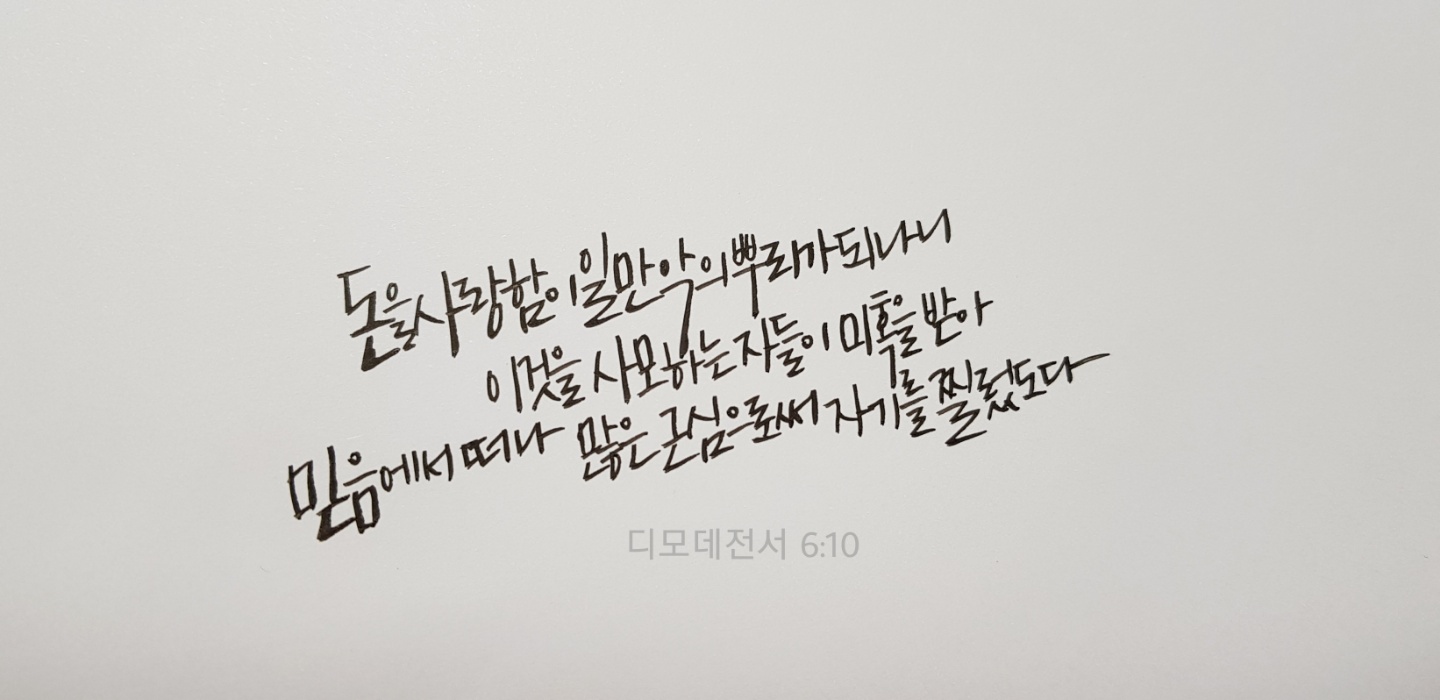 돈을 사랑함이 일만 악의 뿌리가 되나니
이것을 사모하는 자들이 미혹을 받아
믿음에서 떠나 많은 근심으로써 자기를 찔렀도다
디모데전서 6:10